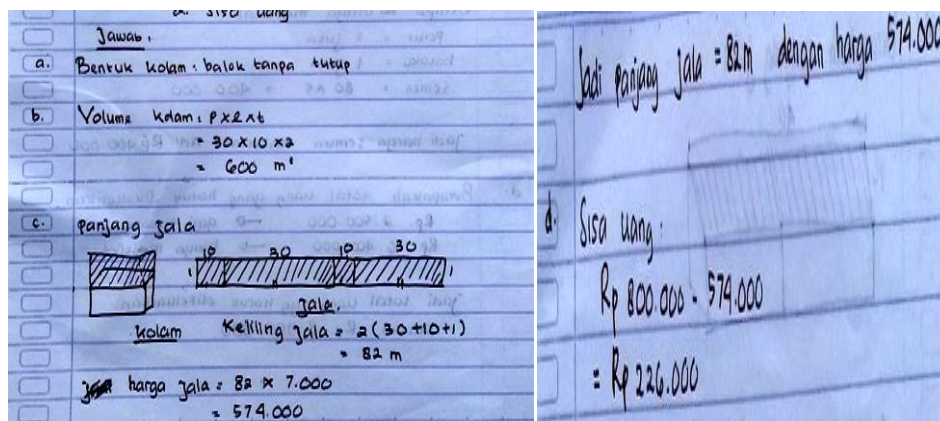 d. Sisa uang
Jawab :
a. Bentuk kolam : balok tanpa tutup
b. Volume kolam : P x l x t
= 30 x 10 x 2
= 600 m'
c. panjang jala
10 30 10 30
1 1
jala.
kolam Keliling jala = 2 (30 +10 +1)
= 82 m
harga jala = 82 x 7.000
= 574.000
Jadi panjang jala = 82m dengan harga 574.000
d. Sisa uang :
Rp 800.000 - 574.000
= Rp 226.000